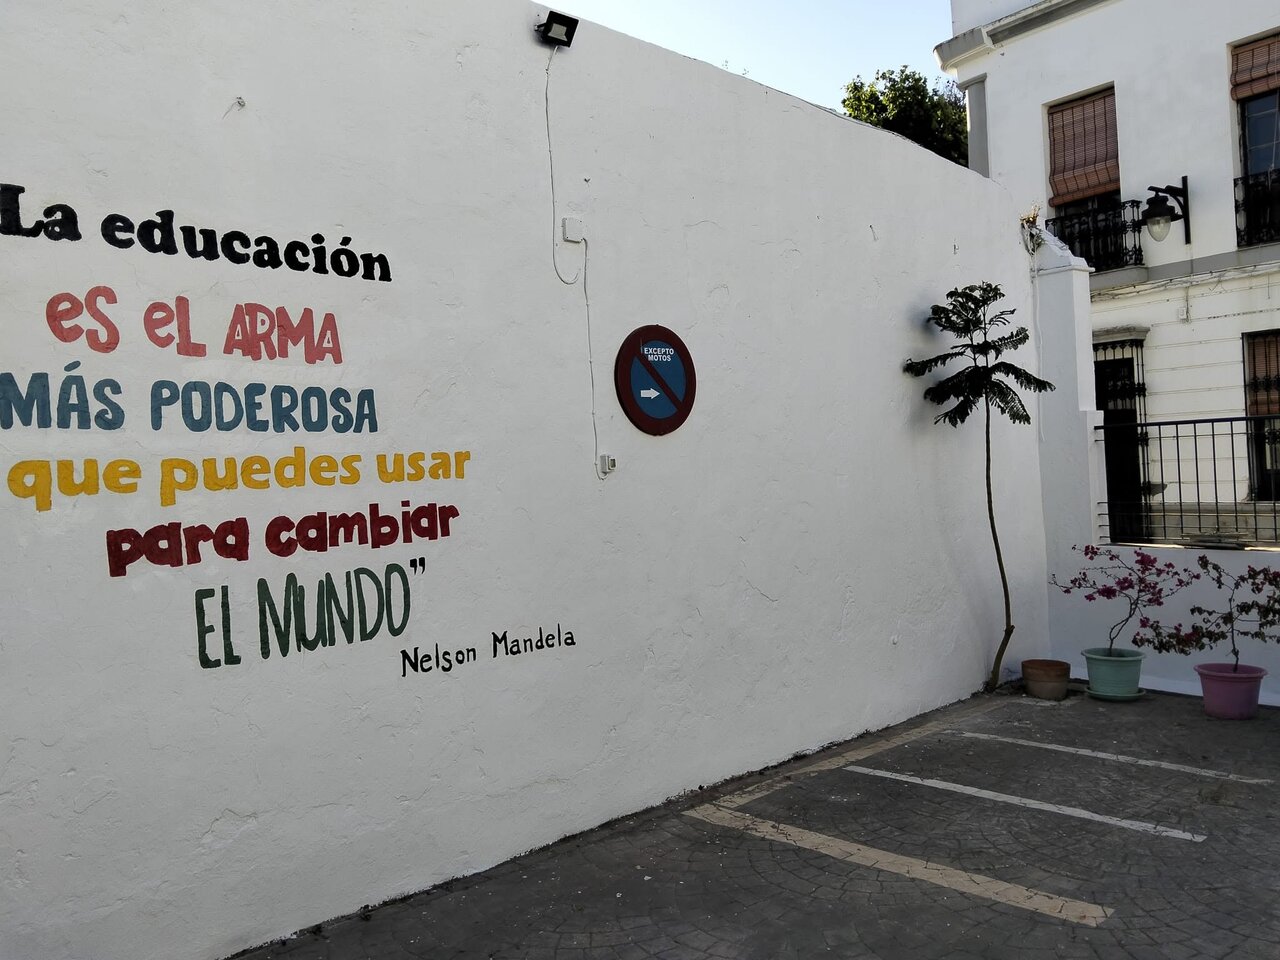 La educación
es el ARMA
MÁS PODEROSA
que puedes usar
para cambiar
EL MUNDO”
Nelson Mandela
EXCEPTO
MOTOS